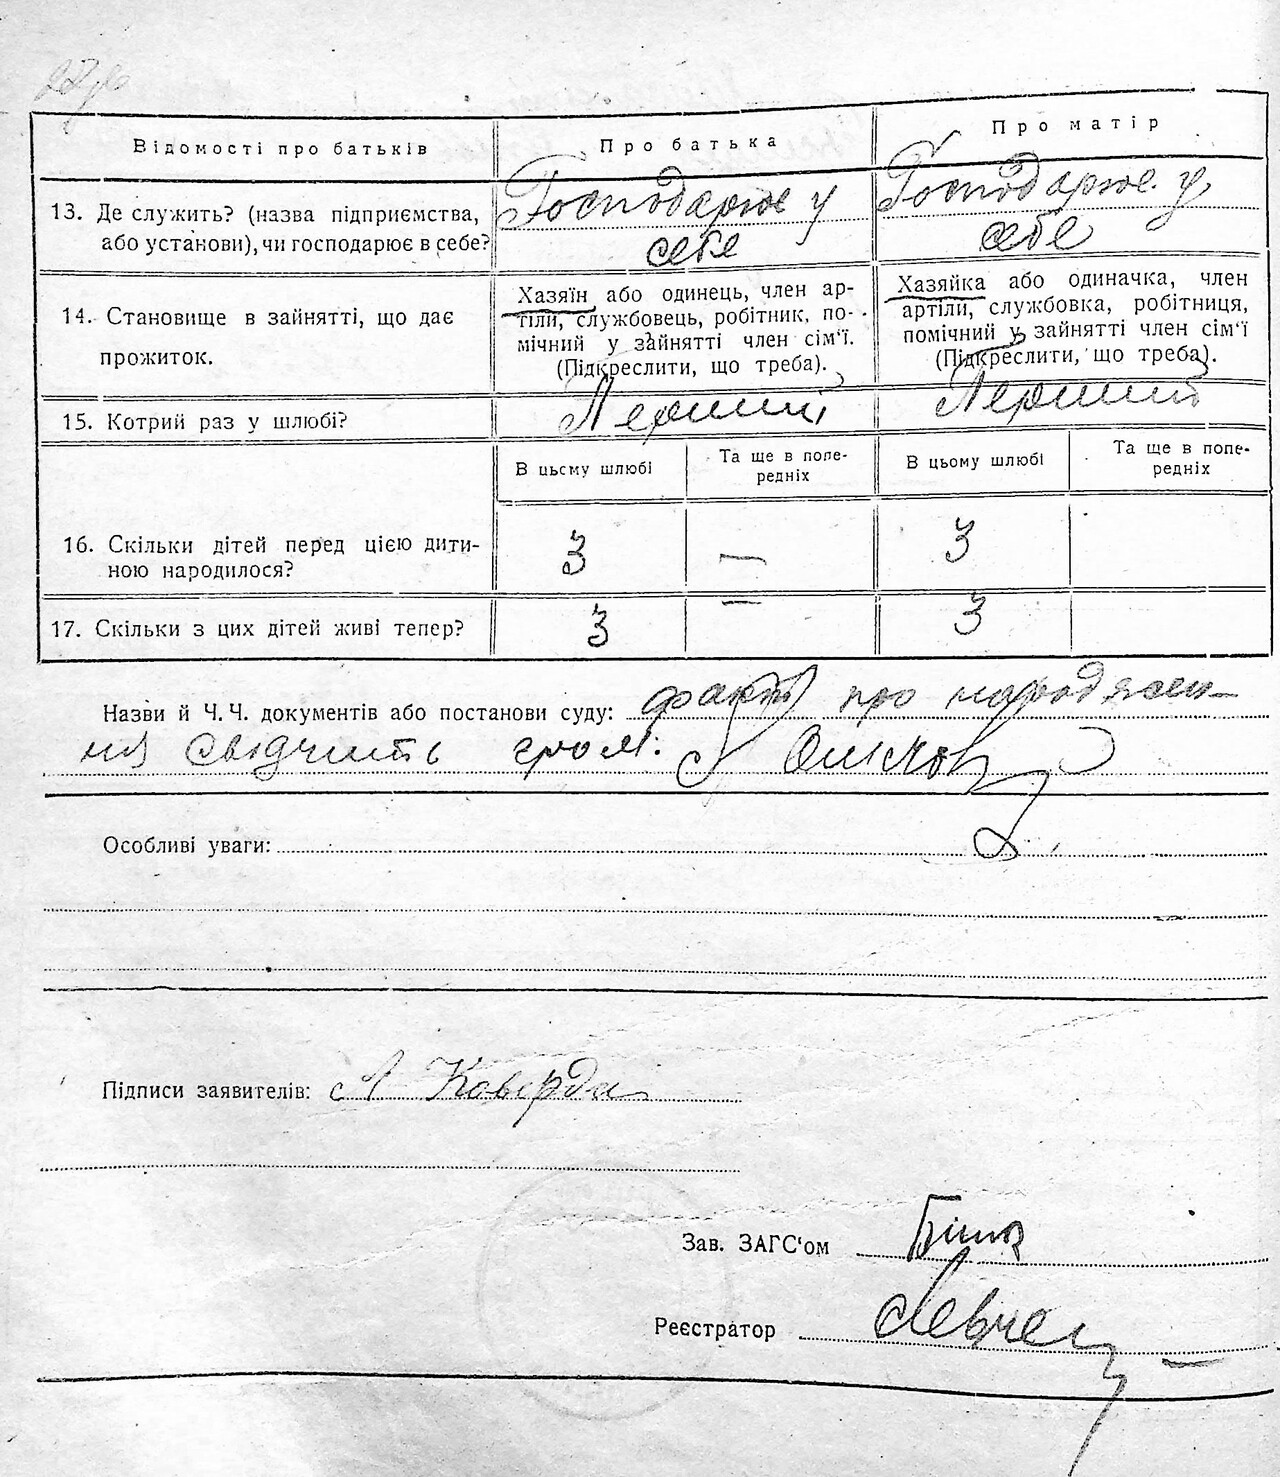 Відомості про батьків
Про батька
Про матір
13. Де служить? (назва підприємства,
або установи), чи господарює в себе?
Господарює у
себе
Господарює у
себе
14. Становище в зайнятті, що дає
прожиток.
Хазяїн або одинець, член ар-
тіли, службовець, робітник, по-
мічний у зайнятті член сім'ї.
(Підкреслити, що треба).
Хазяйка або одиначка, член
артіли, службовка, робітниця,
помічний у зайнятті член сім'ї
(Підкреслити, що треба).
15. Котрий раз у шлюбі?
Перший
Перший
В цьому шлюбі
Та ще в попе-
редніх
В цьому шлюбі
Та ще в попе-
редніх
16. Скільки дітей перед цією дити-
ною народилося?
3
—
3
17. Скільки з цих дітей живі тепер?
3
—
3
Назви й Ч.Ч. документів або постанови суду: факт про народжен-
ня свідчить гром:
Особливі уваги:
Підписи заявителів: Коверда
Зав. ЗАГС'ом
Реєстратор